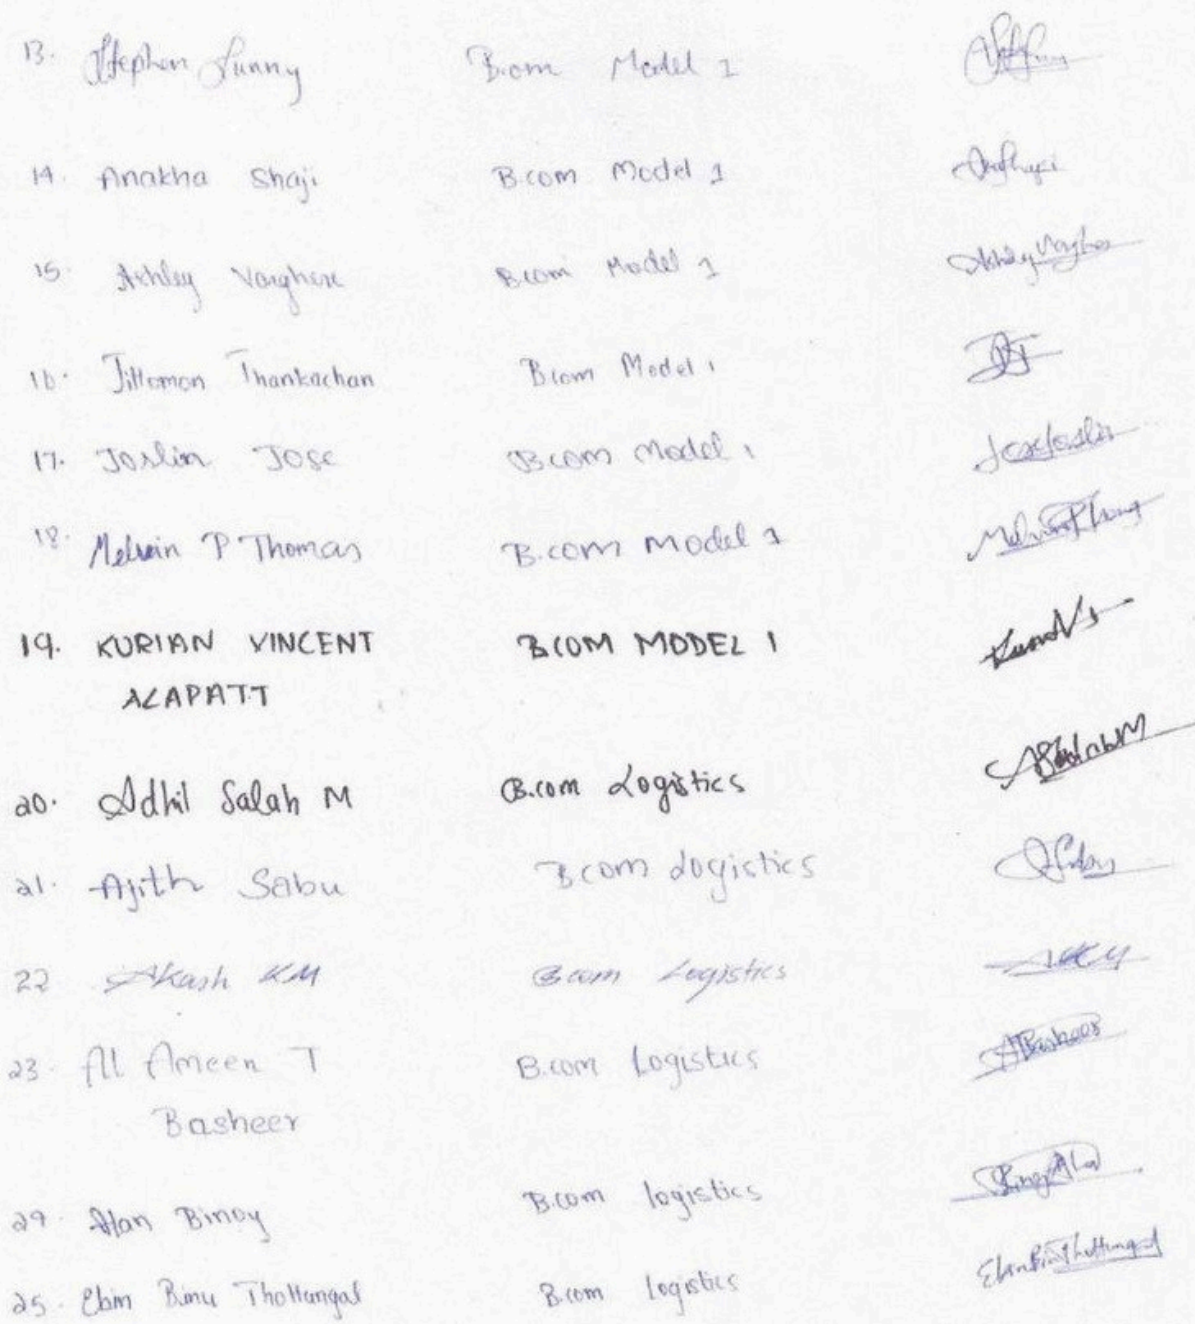 13. Stephen Sunny B.com Model 1
14. Anakha Shaji B.com Model 1
15. Ashley Varghese B.com Model 1 Ashley Varghes
16. Jittomon Thankachan B.com Model 1
17. Joslin Jose B.com Model 1
18. Melwin P Thomas B.com Model 1
19. KURIAN VINCENT BCOM MODEL 1
ALAPATT
20. Adhil Salah M B.com Logistics
21. Ajith Sabu B com Logistics
22 Akash KM B com Logistics
23. Al Ameen T B.com Logistics ABasheer
Basheer
24. Alan Binoy B.com logistics
25. Ebin Binu Thottungal B.com logistics